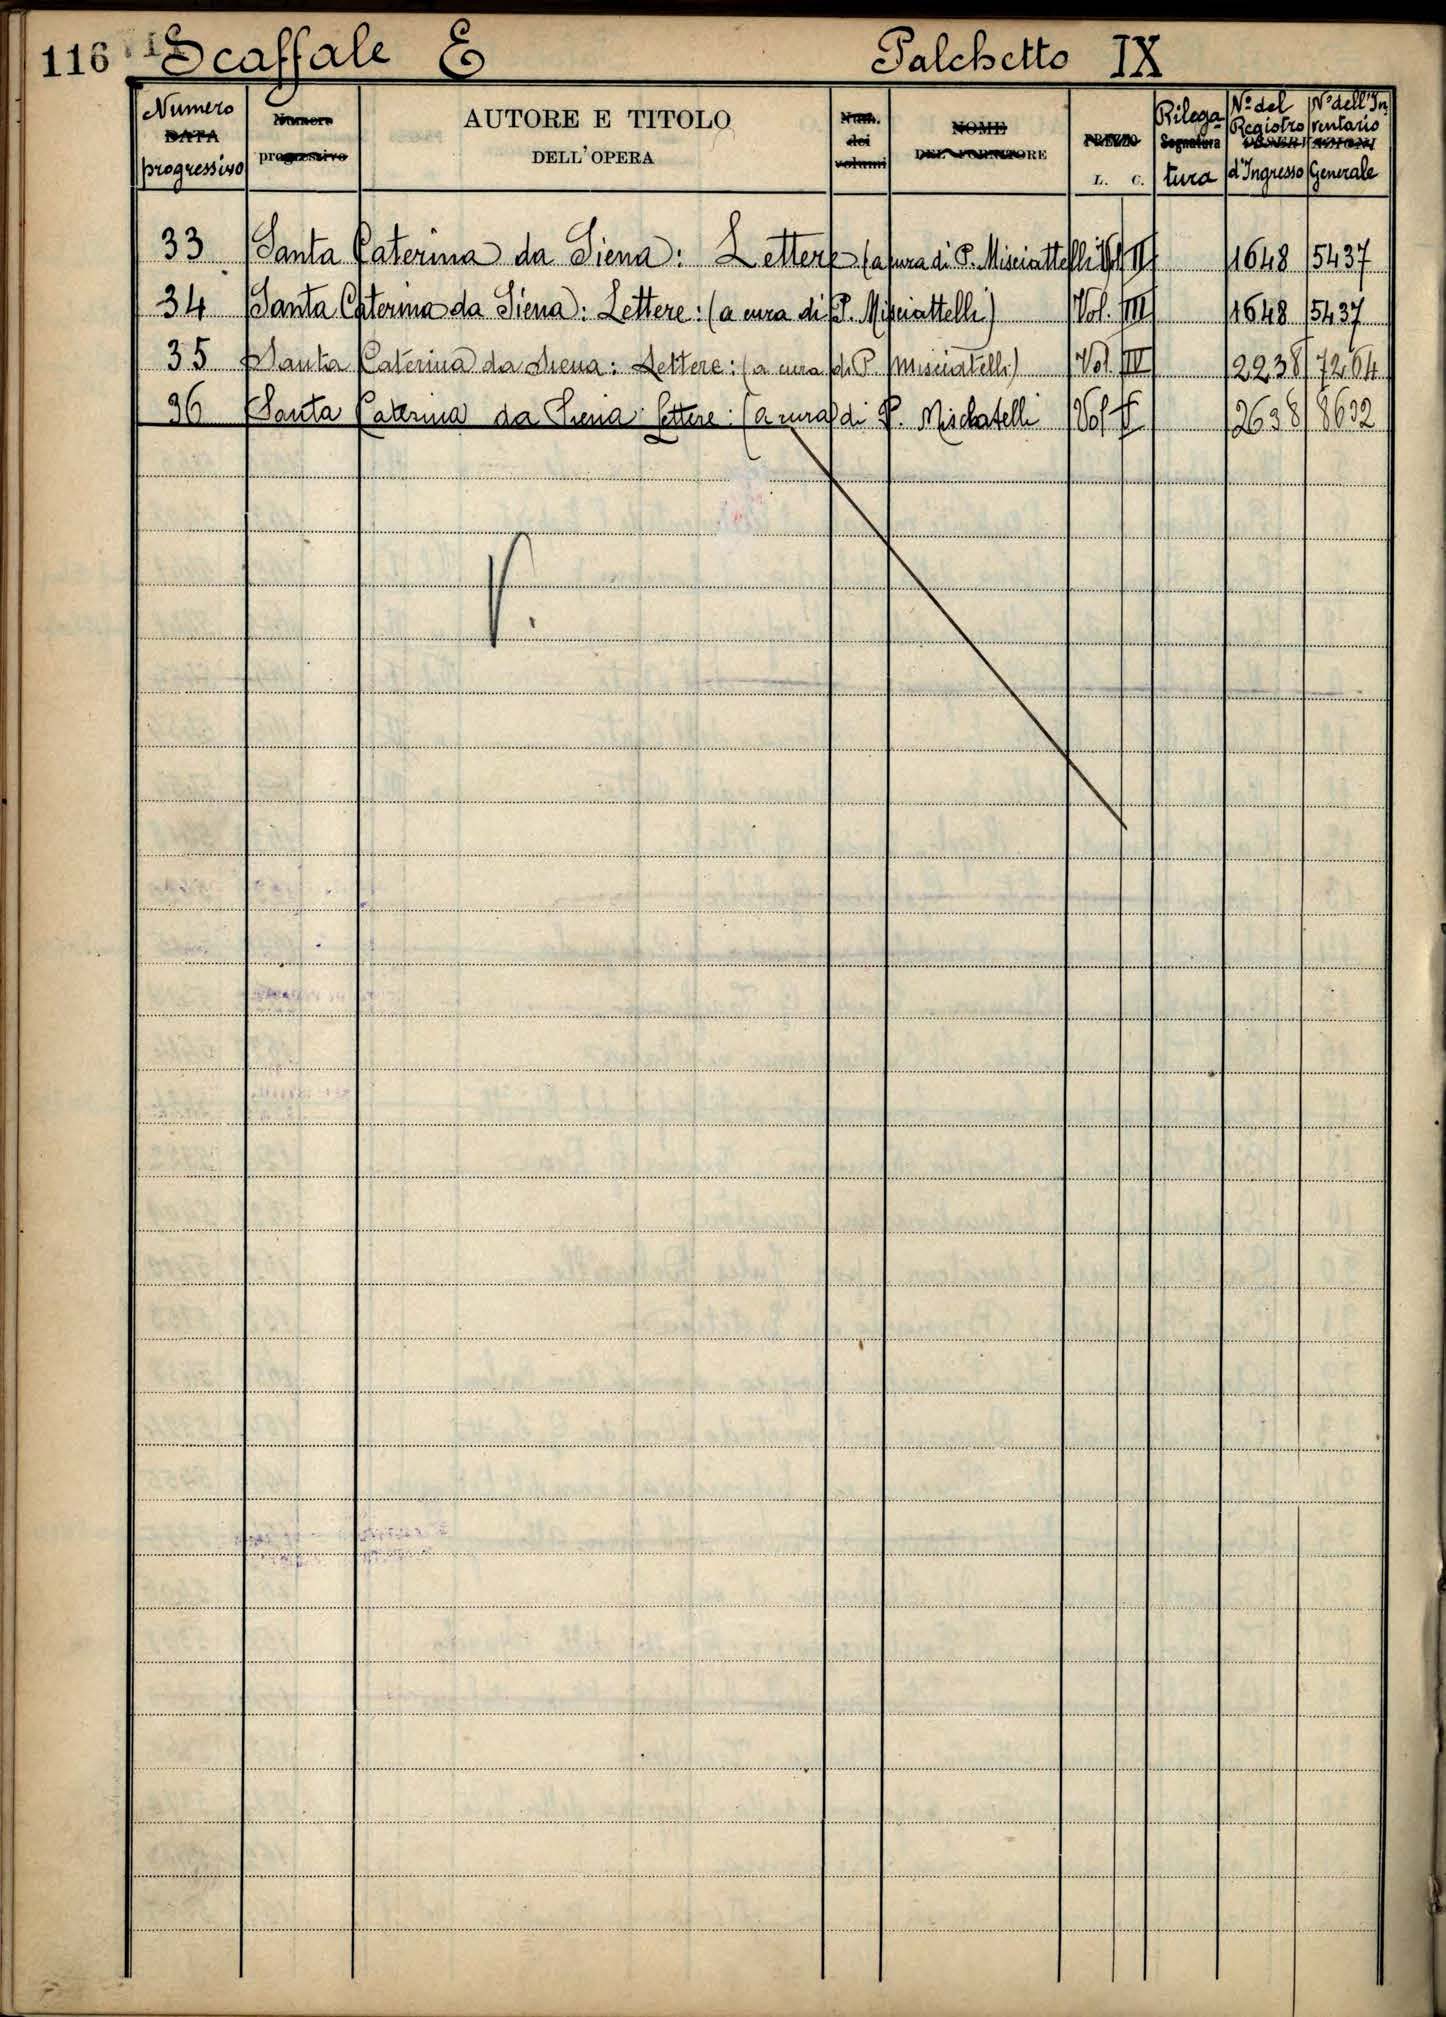 116 Scaffale E Palchetto IX
Numero DATA progressivo
Numero progressivo
AUTORE E TITOLO
DELL'OPERA
Num. dei volumi
NOME DEL FORNITORE
PREZZO
L. C.
Rilega Segnatura tura
Nº del Registro d'Ingresso
Nº dell'In ventario Generale
33 Santa Caterina da Siena: Lettere (a cura di P. Misciattelli Vol II 1648 5437
34 Santa Caterina da Siena: Lettere: (a cura di P. Misciattelli) Vol. III 1648 5437
35 Santa Caterina da Siena: Lettere: (a cura di P. Misciatelli) Vol. IV 2238 7264
36 Santa Caterina da Siena: Lettere: (a cura di P. Misciatelli Vol V 2638 8632
V.